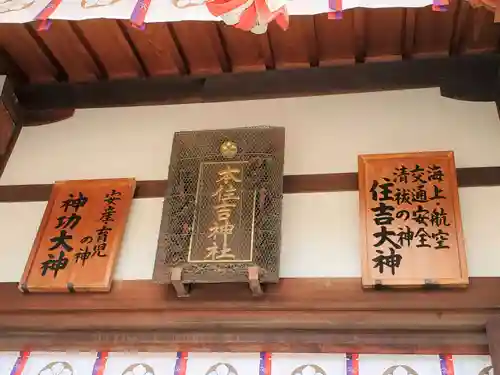 海上航空
交通安全
清祓の神
住吉大神
本住吉神社
安産育児
の神
神功大神